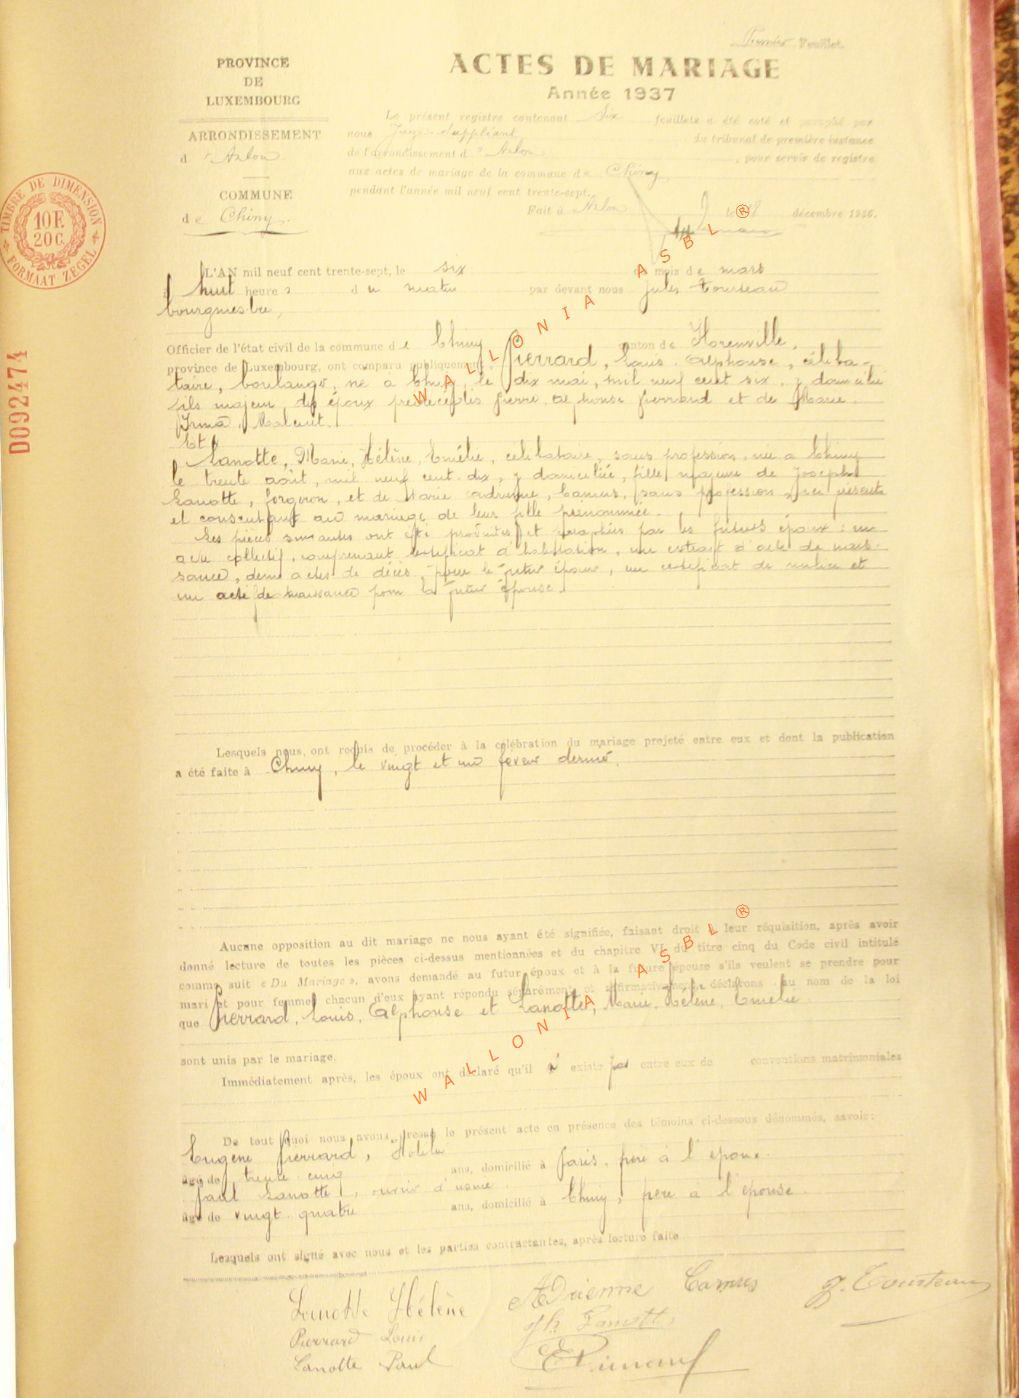 Premier Feuillet.
PROVINCE
DE
LUXEMBOURG
ARRONDISSEMENT
d'Arlon
COMMUNE
de Chiny.
ACTES DE MARIAGE
Année 1937
Le présent registre contenant six feuillets a été coté et paraphé par
nous Juge suppléant du tribunal de première instance
de l'arrondissement d'Arlon, pour servir de registre
aux actes de mariage de la commune de Chiny,
pendant l'année mil neuf cent trente-sept.
Fait à Arlon le décembre 1936.
TIMBRE DE DIMENSION
10 F.
20 C.
FORMAAT ZEGEL
D092474
L'AN mil neuf cent trente-sept, le six mois de mars
à huit heures du matin par devant nous Jules Tourteau
bourgmestre,
Officier de l'état civil de la commune de Chiny canton de Florenville,
province de Luxembourg, ont comparu publiquement Pierrard, Louis, Alphonse, céliba-
taire, boulanger, né à Chiny, le dix mai, mil neuf cent six, y domicilié
fils majeur, des époux prédécédés Pierre Alphonse Pierrard et de Marie
Irma
Et
Lanotte, Marie, Hélène, Emélie, célibataire, sans profession, née à Chiny
le trente août, mil neuf cent dix, y domiciliée, fille majeure de Joseph
Lanotte, forgeron, et de Marie Adrienne, Camus, sans profession, ici présents
et consentant au mariage de leur fille prénommée.
Les pièces suivantes ont été produites et paraphées par les futurs époux : un
acte collectif, comprenant certificat d'habitation, un extrait d'acte de nais-
sance, deux actes de décès, pour le futur époux, un certificat de milice et
un acte de naissance pour la future épouse.
Lesquels nous, ont requis de procéder à la célébration du mariage projeté entre eux et dont la publication
a été faite à Chiny, le vingt et un dernier.
Aucune opposition au dit mariage ne nous ayant été signifiée, faisant droit à leur réquisition, après avoir
donné lecture de toutes les pièces ci-dessus mentionnées et du chapitre VI du titre cinq du Code civil intitulé
comme suit « Du Mariage », avons demandé au futur époux et à la future épouse s'ils veulent se prendre pour
mari et pour femme, chacun d'eux ayant répondu séparément et affirmativement, déclarons au nom de la loi
que Pierrard, Louis, Alphonse et Lanotte, Marie, Hélène, Emélie
sont unis par le mariage.
Immédiatement après, les époux ont déclaré qu'il n' existe pas entre eux de conventions matrimoniales
De tout quoi nous avons dressé le présent acte en présence des témoins ci-dessous dénommés, savoir :
Eugène Pierrard,
âgé de trente cinq ans, domicilié à Paris, frère à l'époux
Paul Lanotte, ouvrier d'usine
âgé de vingt quatre ans, domicilié à Chiny, frère à l'épouse
Lesquels ont signé avec nous et les parties contractantes, après lecture faite
Lanotte Hélène
Adrienne Camus
J. Tourteau
Pierrard Louis
Jh. Lanotte
Lanotte Paul
WALLONIA ASBL ®
WALLONIA ASBL ®